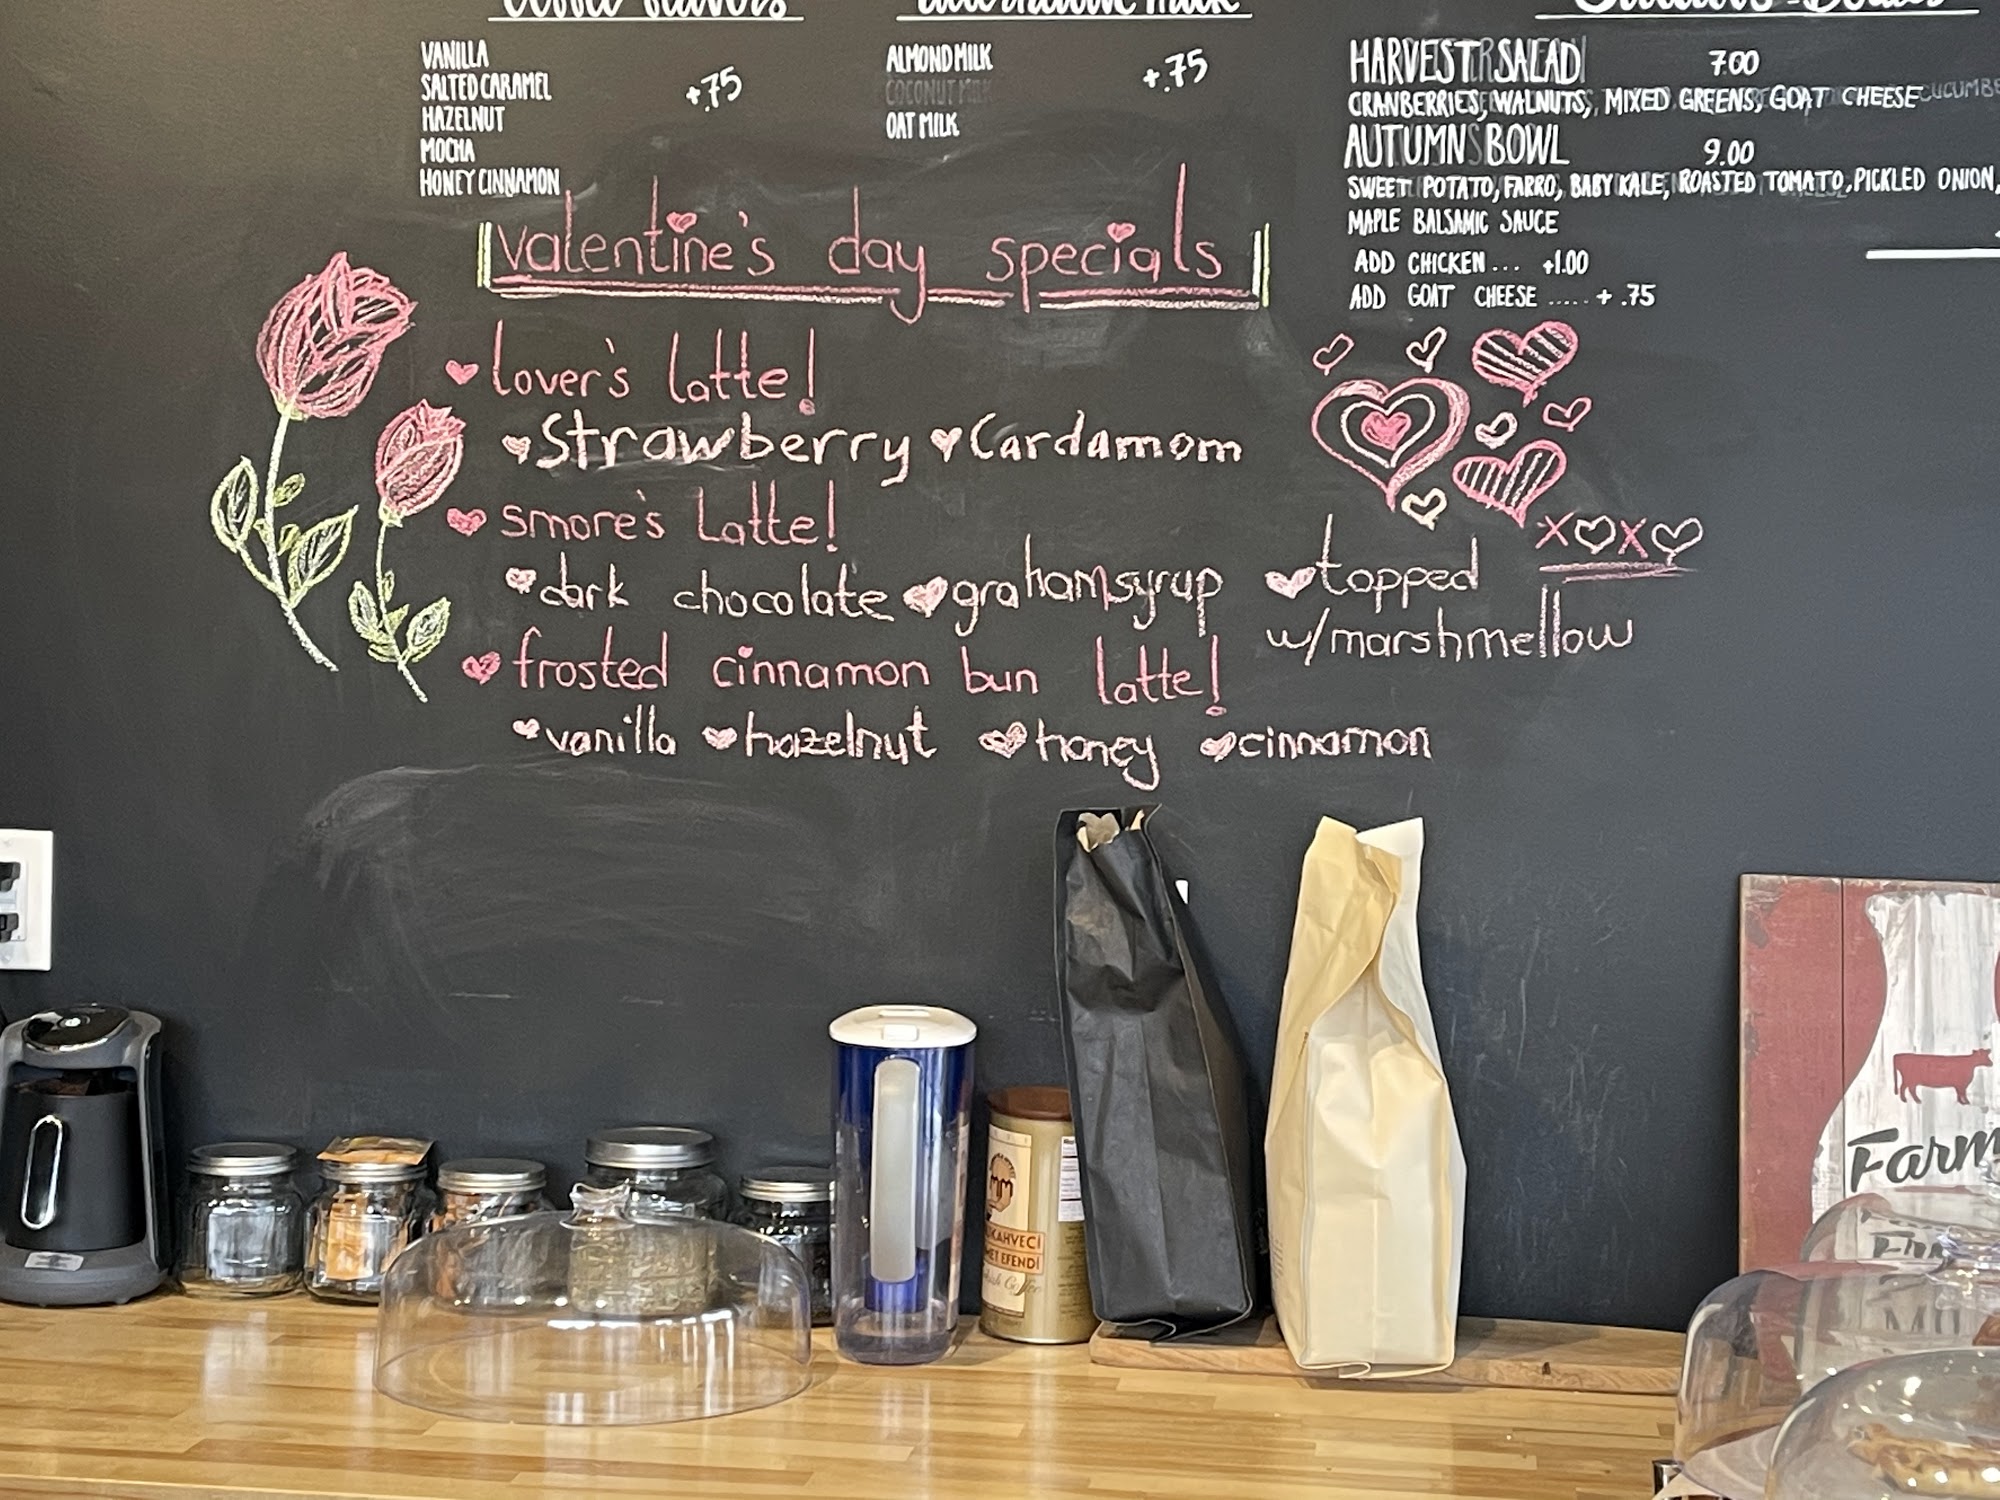 VANILLA
SALTED CARAMEL
HAZELNUT
MOCHA
HONEY CINNAMON
+.75
ALMOND MILK
COCONUT MILK
OAT MILK
+.75
HARVEST SALAD 7.00
CRANBERRIES, WALNUTS, MIXED GREENS, GOAT CHEESE
AUTUMN BOWL 9.00
SWEET POTATO, FARRO, BABY KALE, ROASTED TOMATO, PICKLED ONION,
MAPLE BALSAMIC SAUCE
ADD CHICKEN... +1.00
ADD GOAT CHEESE ..... + .75
valentine's day specials
lover's latte!
Strawberry Cardamom
smore's latte!
dark chocolate graham syrup topped
w/marshmellow
frosted cinnamon bun latte!
vanilla hazelnut honey cinnamon
XOXO
Farm